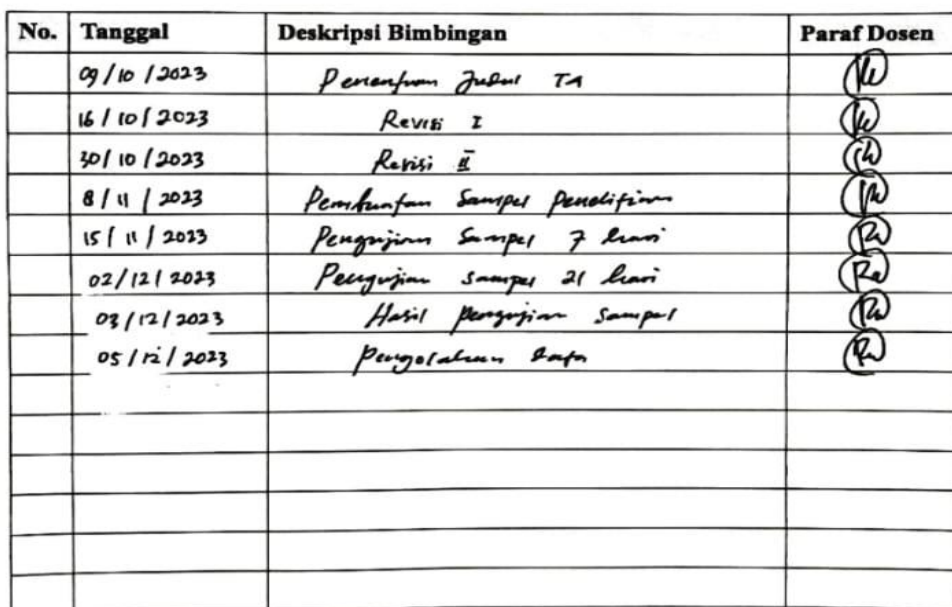 No. Tanggal Deskripsi Bimbingan Paraf Dosen
09/10/2023 Penentuan Judul TA
16/10/2023 Revisi I
30/10/2023 Revisi II
8/11/2023 Pembuatan Sampel Penelitian
15/11/2023 Pengujian Sampel 7 hari
02/12/2023 Pengujian sampel 21 hari
03/12/2023 Hasil pengujian sampel
05/12/2023 Pengolahan data